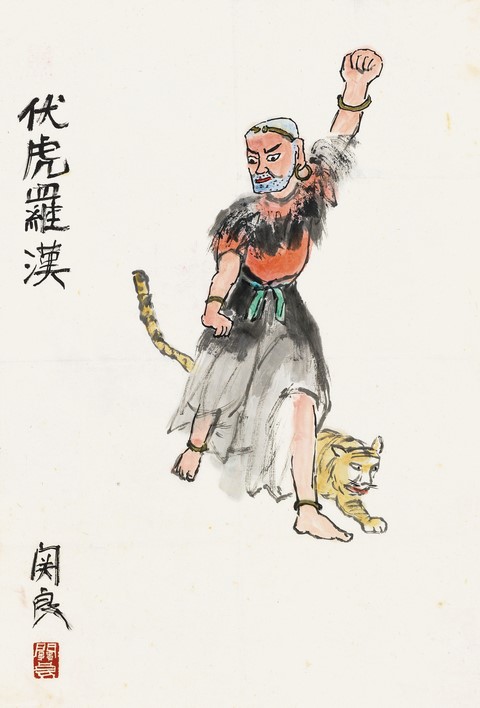 伏虎羅漢
关良
關良